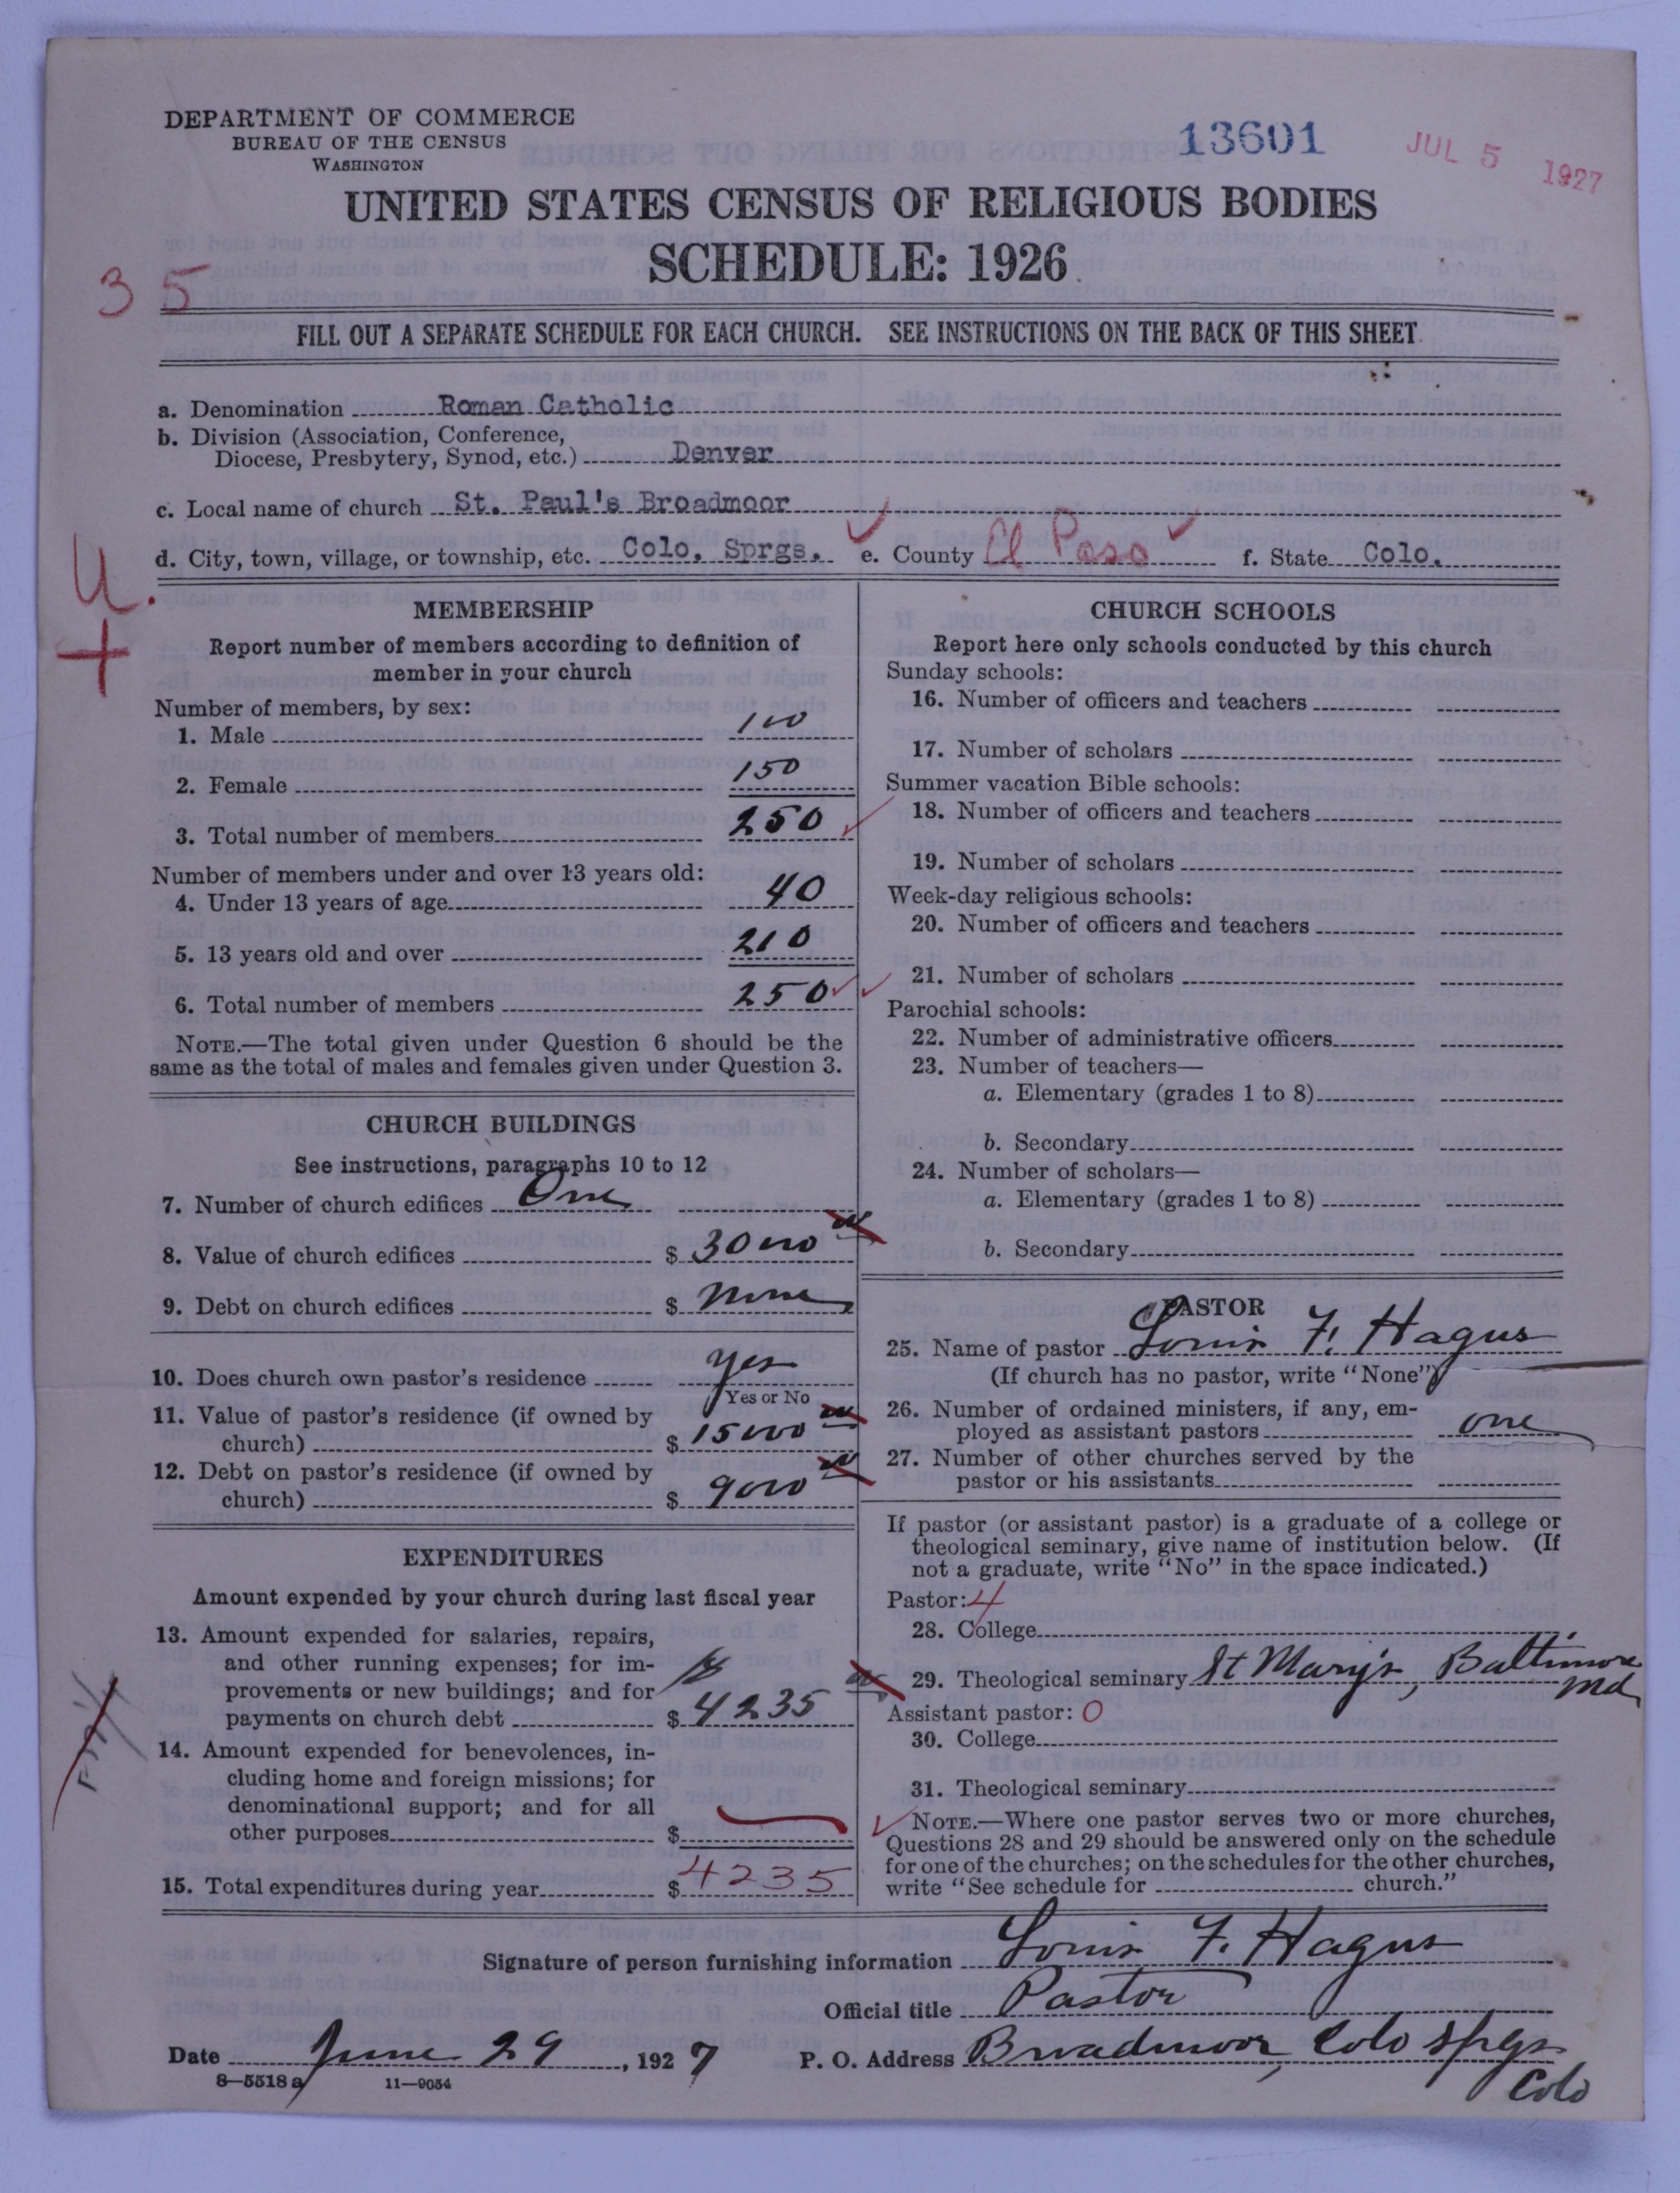 DEPARTMENT OF COMMERCE
BUREAU OF THE CENSUS
WASHINGTON
13601
JUL 5 1927
UNITED STATES CENSUS OF RELIGIOUS BODIES
SCHEDULE: 1926
35
FILL OUT A SEPARATE SCHEDULE FOR EACH CHURCH. SEE INSTRUCTIONS ON THE BACK OF THIS SHEET
a. Denomination Roman Catholic
b. Division (Association, Conference,
Diocese, Presbytery, Synod, etc.) Denver
c. Local name of church St. Paul's Broadmoor
d. City, town, village, or township, etc. Colo. Sprgs. e. County El Paso f. State Colo.
U.
MEMBERSHIP
Report number of members according to definition of
member in your church
Number of members, by sex:
1. Male 100
2. Female 150
3. Total number of members 250
Number of members under and over 13 years old:
4. Under 13 years of age 40
5. 13 years old and over 210
6. Total number of members 250
NOTE.—The total given under Question 6 should be the
same as the total of males and females given under Question 3.
CHURCH BUILDINGS
See instructions, paragraphs 10 to 12
7. Number of church edifices One
8. Value of church edifices $ 30000
9. Debt on church edifices $ none
10. Does church own pastor's residence yes
Yes or No
11. Value of pastor's residence (if owned by
church) $ 15000
12. Debt on pastor's residence (if owned by
church) $ 9000
EXPENDITURES
Amount expended by your church during last fiscal year
13. Amount expended for salaries, repairs,
and other running expenses; for im-
provements or new buildings; and for
payments on church debt $ 4235
14. Amount expended for benevolences, in-
cluding home and foreign missions; for
denominational support; and for all
other purposes $
15. Total expenditures during year $ 4235
CHURCH SCHOOLS
Report here only schools conducted by this church
Sunday schools:
16. Number of officers and teachers
17. Number of scholars
Summer vacation Bible schools:
18. Number of officers and teachers
19. Number of scholars
Week-day religious schools:
20. Number of officers and teachers
21. Number of scholars
Parochial schools:
22. Number of administrative officers
23. Number of teachers—
a. Elementary (grades 1 to 8)
b. Secondary
24. Number of scholars—
a. Elementary (grades 1 to 8)
b. Secondary
PASTOR
25. Name of pastor Louis F. Hagus
(If church has no pastor, write "None")
26. Number of ordained ministers, if any, em-
ployed as assistant pastors one
27. Number of other churches served by the
pastor or his assistants
If pastor (or assistant pastor) is a graduate of a college or
theological seminary, give name of institution below. (If
not a graduate, write "No" in the space indicated.)
Pastor: 4
28. College
29. Theological seminary St Mary's, Baltimore
Md
Assistant pastor: 0
30. College
31. Theological seminary
NOTE.—Where one pastor serves two or more churches,
Questions 28 and 29 should be answered only on the schedule
for one of the churches; on the schedules for the other churches,
write "See schedule for church."
Signature of person furnishing information Louis F. Hagus
Official title Pastor
Date June 29, 1927 P. O. Address Broadmoor, Colo Spgs
Colo
8—5518a 11—9054